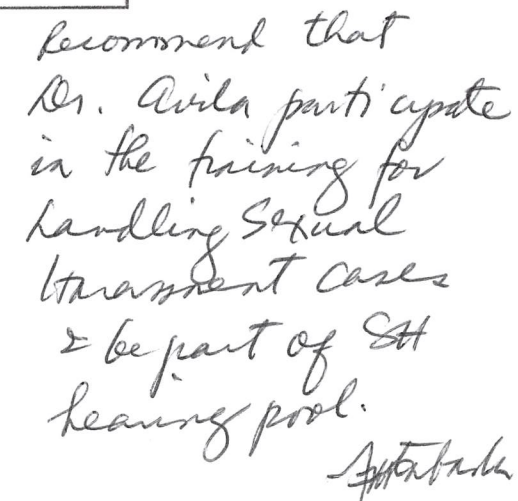 Recommend that
Dr. Avila participate
in the training for
handling Sexual
Harassment cases
& be part of SH
hearing pool.